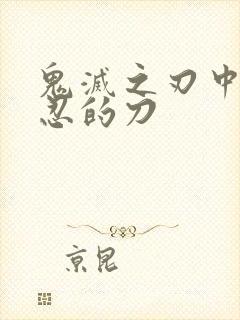 鬼滅之刃中
忍的刀
京昆